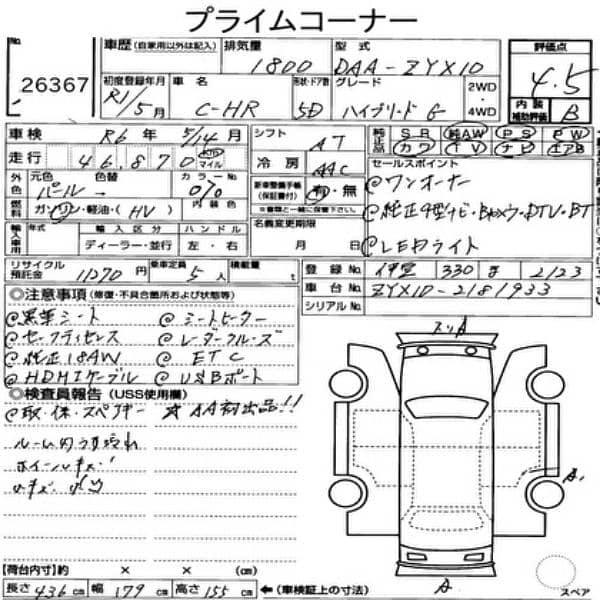 プライムコーナー
No.
26367
車歴 (自家用以外は記入)
排気量 1800
型式 DAA-ZYX10
評価点 4.5
初度登録年月 R1/5月
車名 C-HR
形状・ドア数 5D
グレード ハイブリッド G
2WD
4WD
内装補助評価 B
車検 R6年 5/14月
シフト AT
純正装備品
SR 純AW PS PW
カワ TV ナビ エアB
走行 46,870 km マイル
冷房 AAC
セールスポイント
外色 元色 色替 カラーNo.
パール→ 070
新車整備手帳(保証書付) 有・無
※書類と一緒に保管下さい
@ワンオーナー
燃料 ガソリン・軽油・(HV) 内装色
名義変更期限
月 日
@純正9型ナビ・Bカメラ・DTV・BT
輸入車用 年式 輸入区分 ハンドル
ディーラー・並行 左・右
@LEDライト
リサイクル預託金 11270円
乗車定員 5人
積載量 t
登録No. 330 ま 2123
車台No. ZYX10-2181933
シリアルNo.
◎注意事項 (修復・不具合箇所および状態等)
@黒革シート @シートヒーター
@セーフティセンス @レーダークルーズ
@純正18AW @ETC
@HDMIケーブル @USBポート
◎検査員報告 (USS使用欄)
@取・保・スペアキー ☆AA初出品!!
ルーム内うす汚れ
ホイールキズ
小キズ
スリA
A
A
【荷台内寸】約 × × (cm)
長さ 436 cm 幅 179 cm 高さ 155 cm ←(車検証上の寸法)
スペア